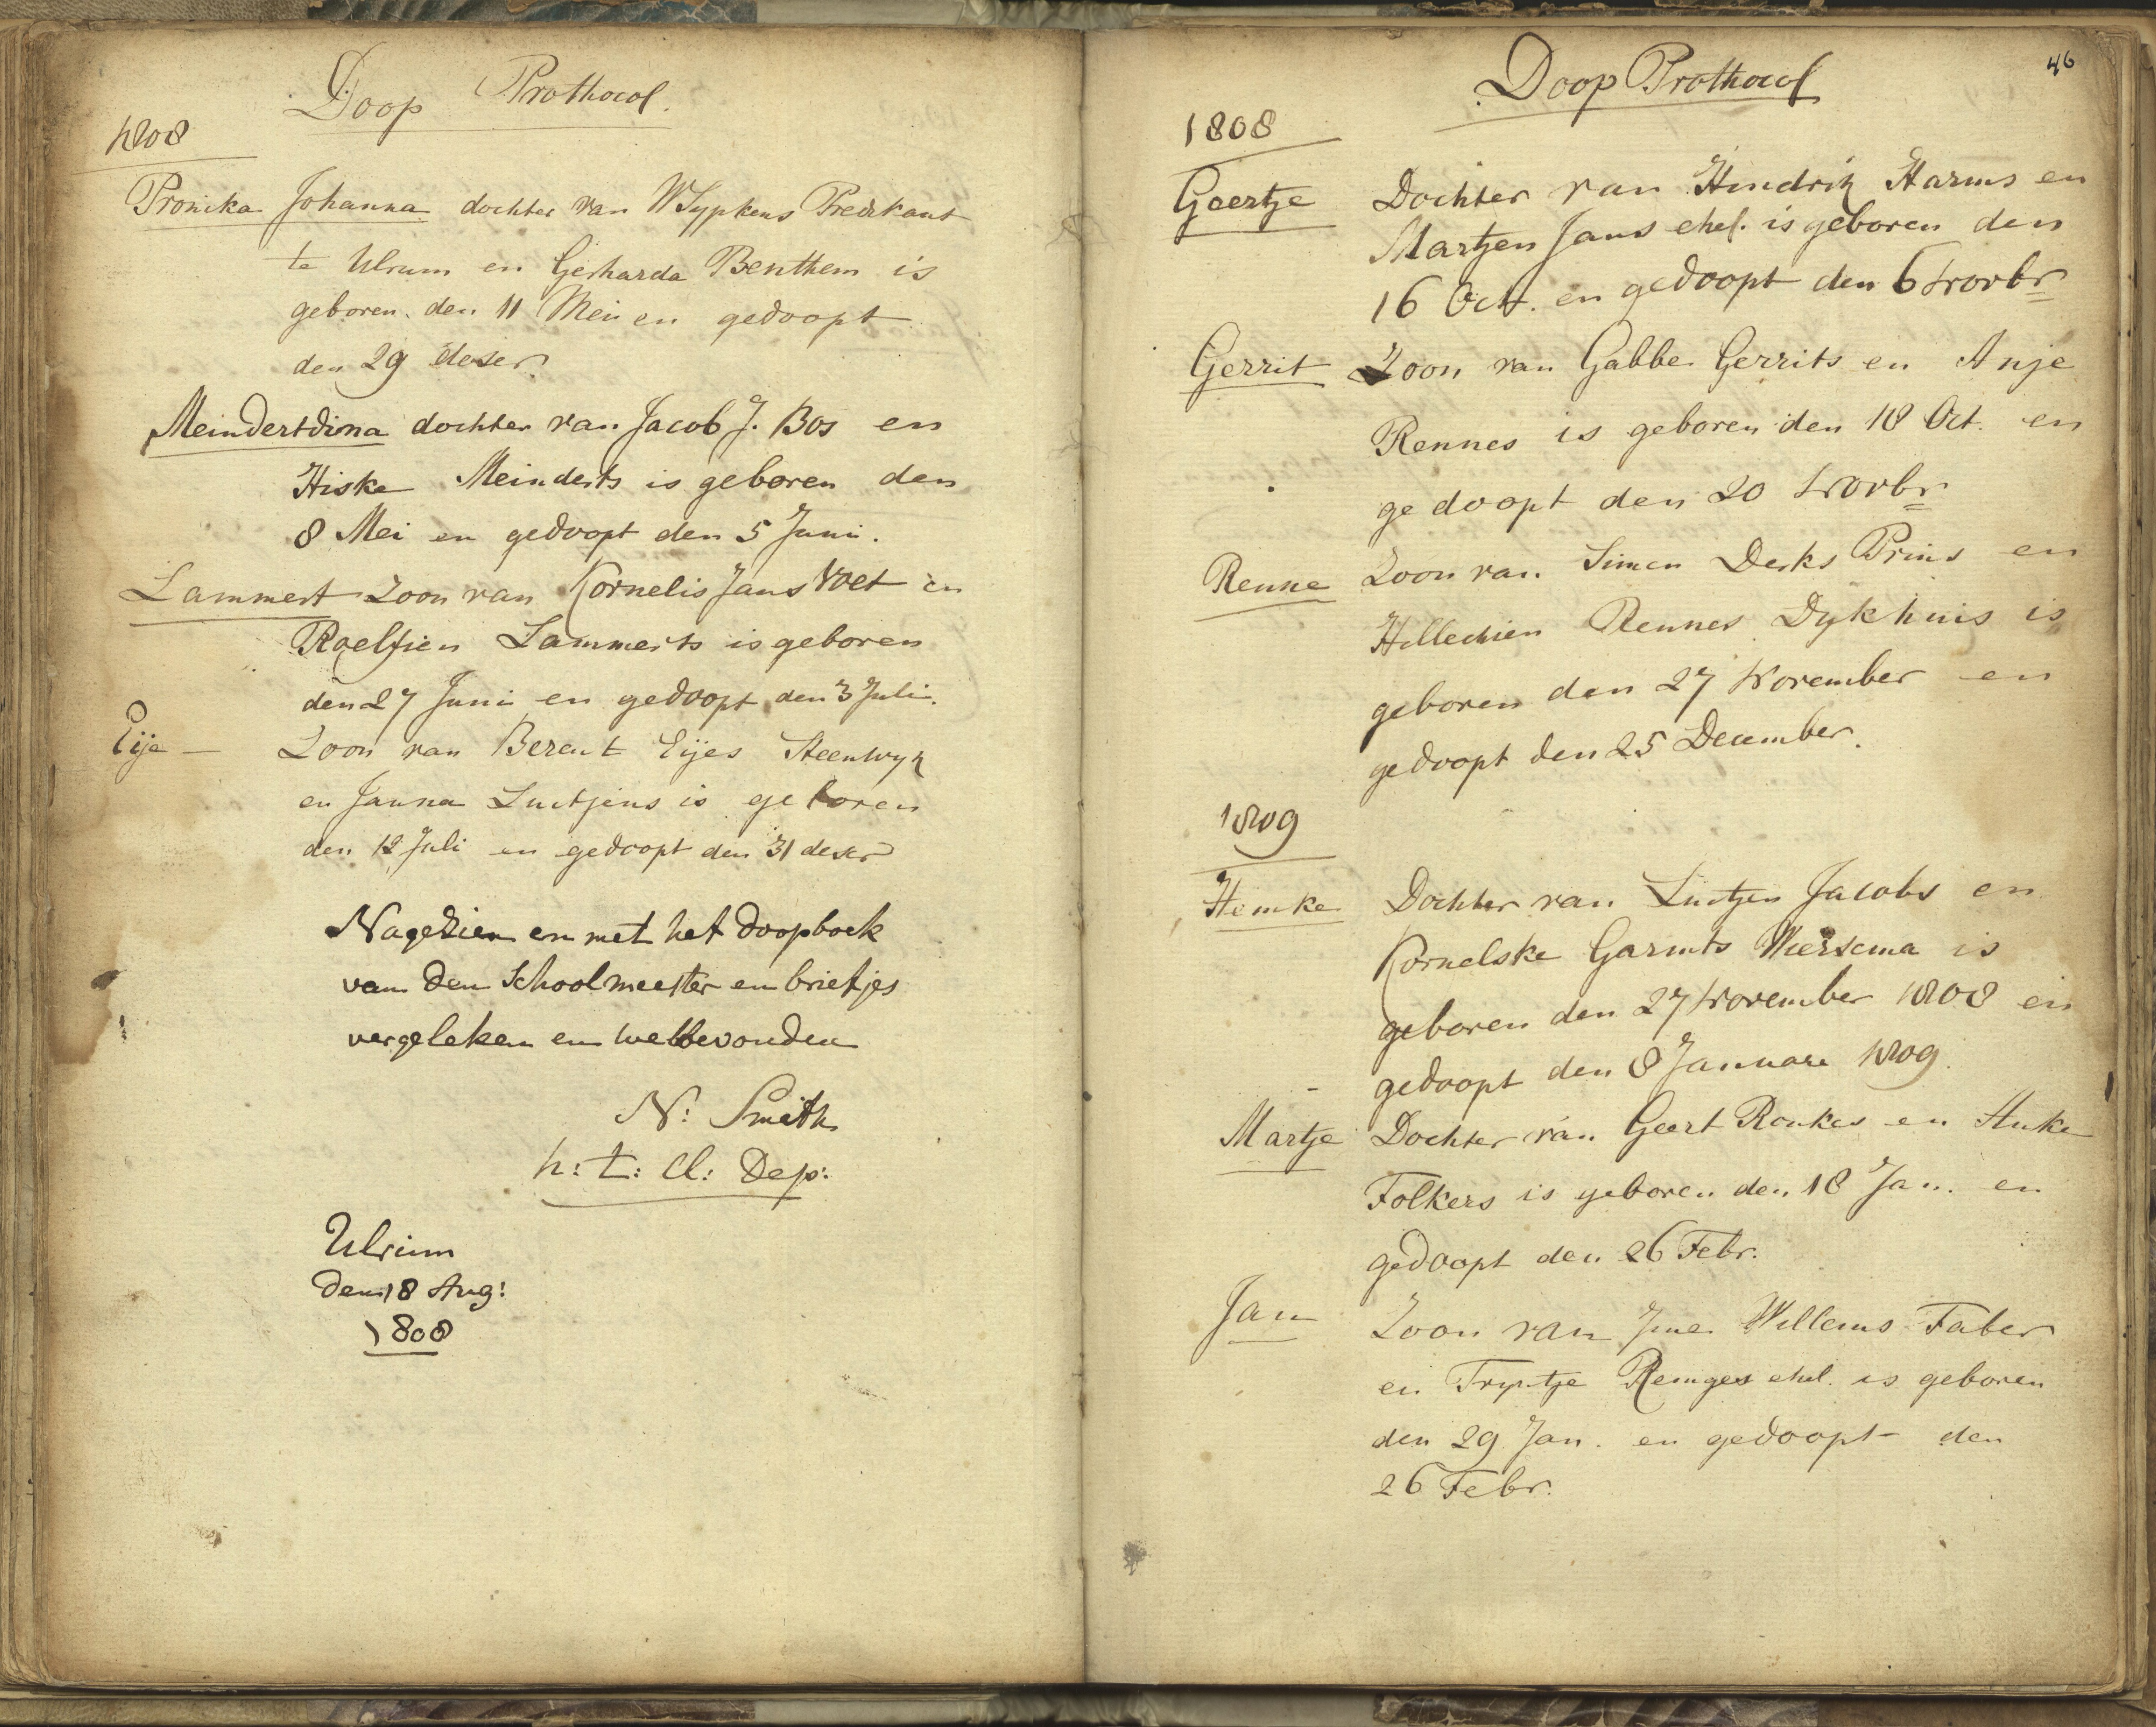 Doop Prothocol.
1808
Pronika Johanna dochter van W Sypkens Predikant
te Ulrum en Gerharda Benthem is
geboren den 11 Mei en gedoopt
den 29 deser
Meindertdina dochter van Jacob J. Bos en
Hiske Meinderts is geboren den
8 Mei en gedoopt den 5 Juni.
Lammert Zoon van Kornelis Jans Voet en
Roelfien Lammerts is geboren
den 27 Juni en gedoopt den 3 Juli.
Eije — Zoon van Berent Eijes Steenwyk
en Janna Luitjens is geboren
den 12 Juli en gedoopt den 31 deser
Nagezien en met het doopboek
van den Schoolmeester en briefjes
vergeleken en welbevonden
N: Smith
h: t: Cl: Dep:
Ulrum
den 18 Aug:
1808
46
Doop Prothocol
1808
Geertje Dochter van Hindrik Harms en
Martjen Jans ehel. is geboren den
16 Oct. en gedoopt den 6 Novbr
Gerrit Zoon van Gabbe Gerrits en Anje
Rennes is geboren den 18 Oct. en
gedoopt den 20 Novbr
Renne Zoon van Simen Derks Prins en
Hillechien Rennes Dykhuis is
geboren den 27 November en
gedoopt den 25 December.
1809
Hemke Dochter van Luitjen Jacobs en
Kornelske Garmts Wiersema is
geboren den 27 November 1808 en
gedoopt den 8 Januare 1809.
Martje Dochter van Geert Ronkes en Auke
Folkers is geboren den 18 Jan. en
gedoopt den 26 Febr.
Jan Zoon van Jme Willems Faber
en Tryntje Remges ehel. is geboren
den 29 Jan. en gedoopt den
26 Febr.